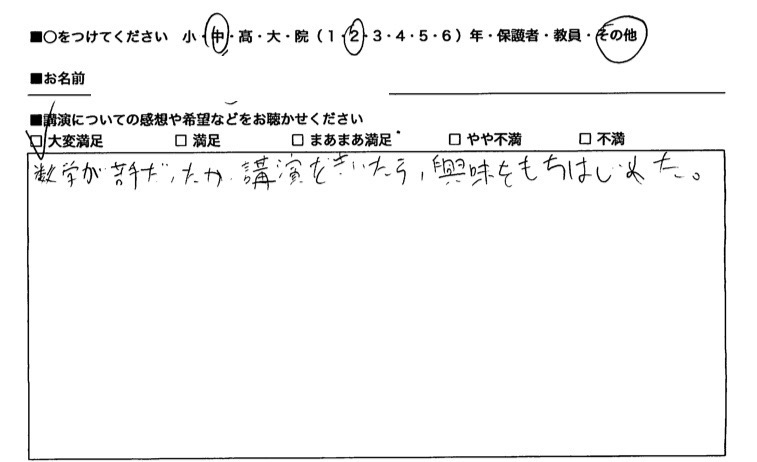 ■○をつけてください 小・中・高・大・院（1・2・3・4・5・6）年・保護者・教員・その他
■お名前
■講演についての感想や希望などをお聴かせください
☑ 大変満足 □ 満足 □ まあまあ満足 □ やや不満 □ 不満
数学が苦手だったが、講演をきいたら、興味をもちはじめた。